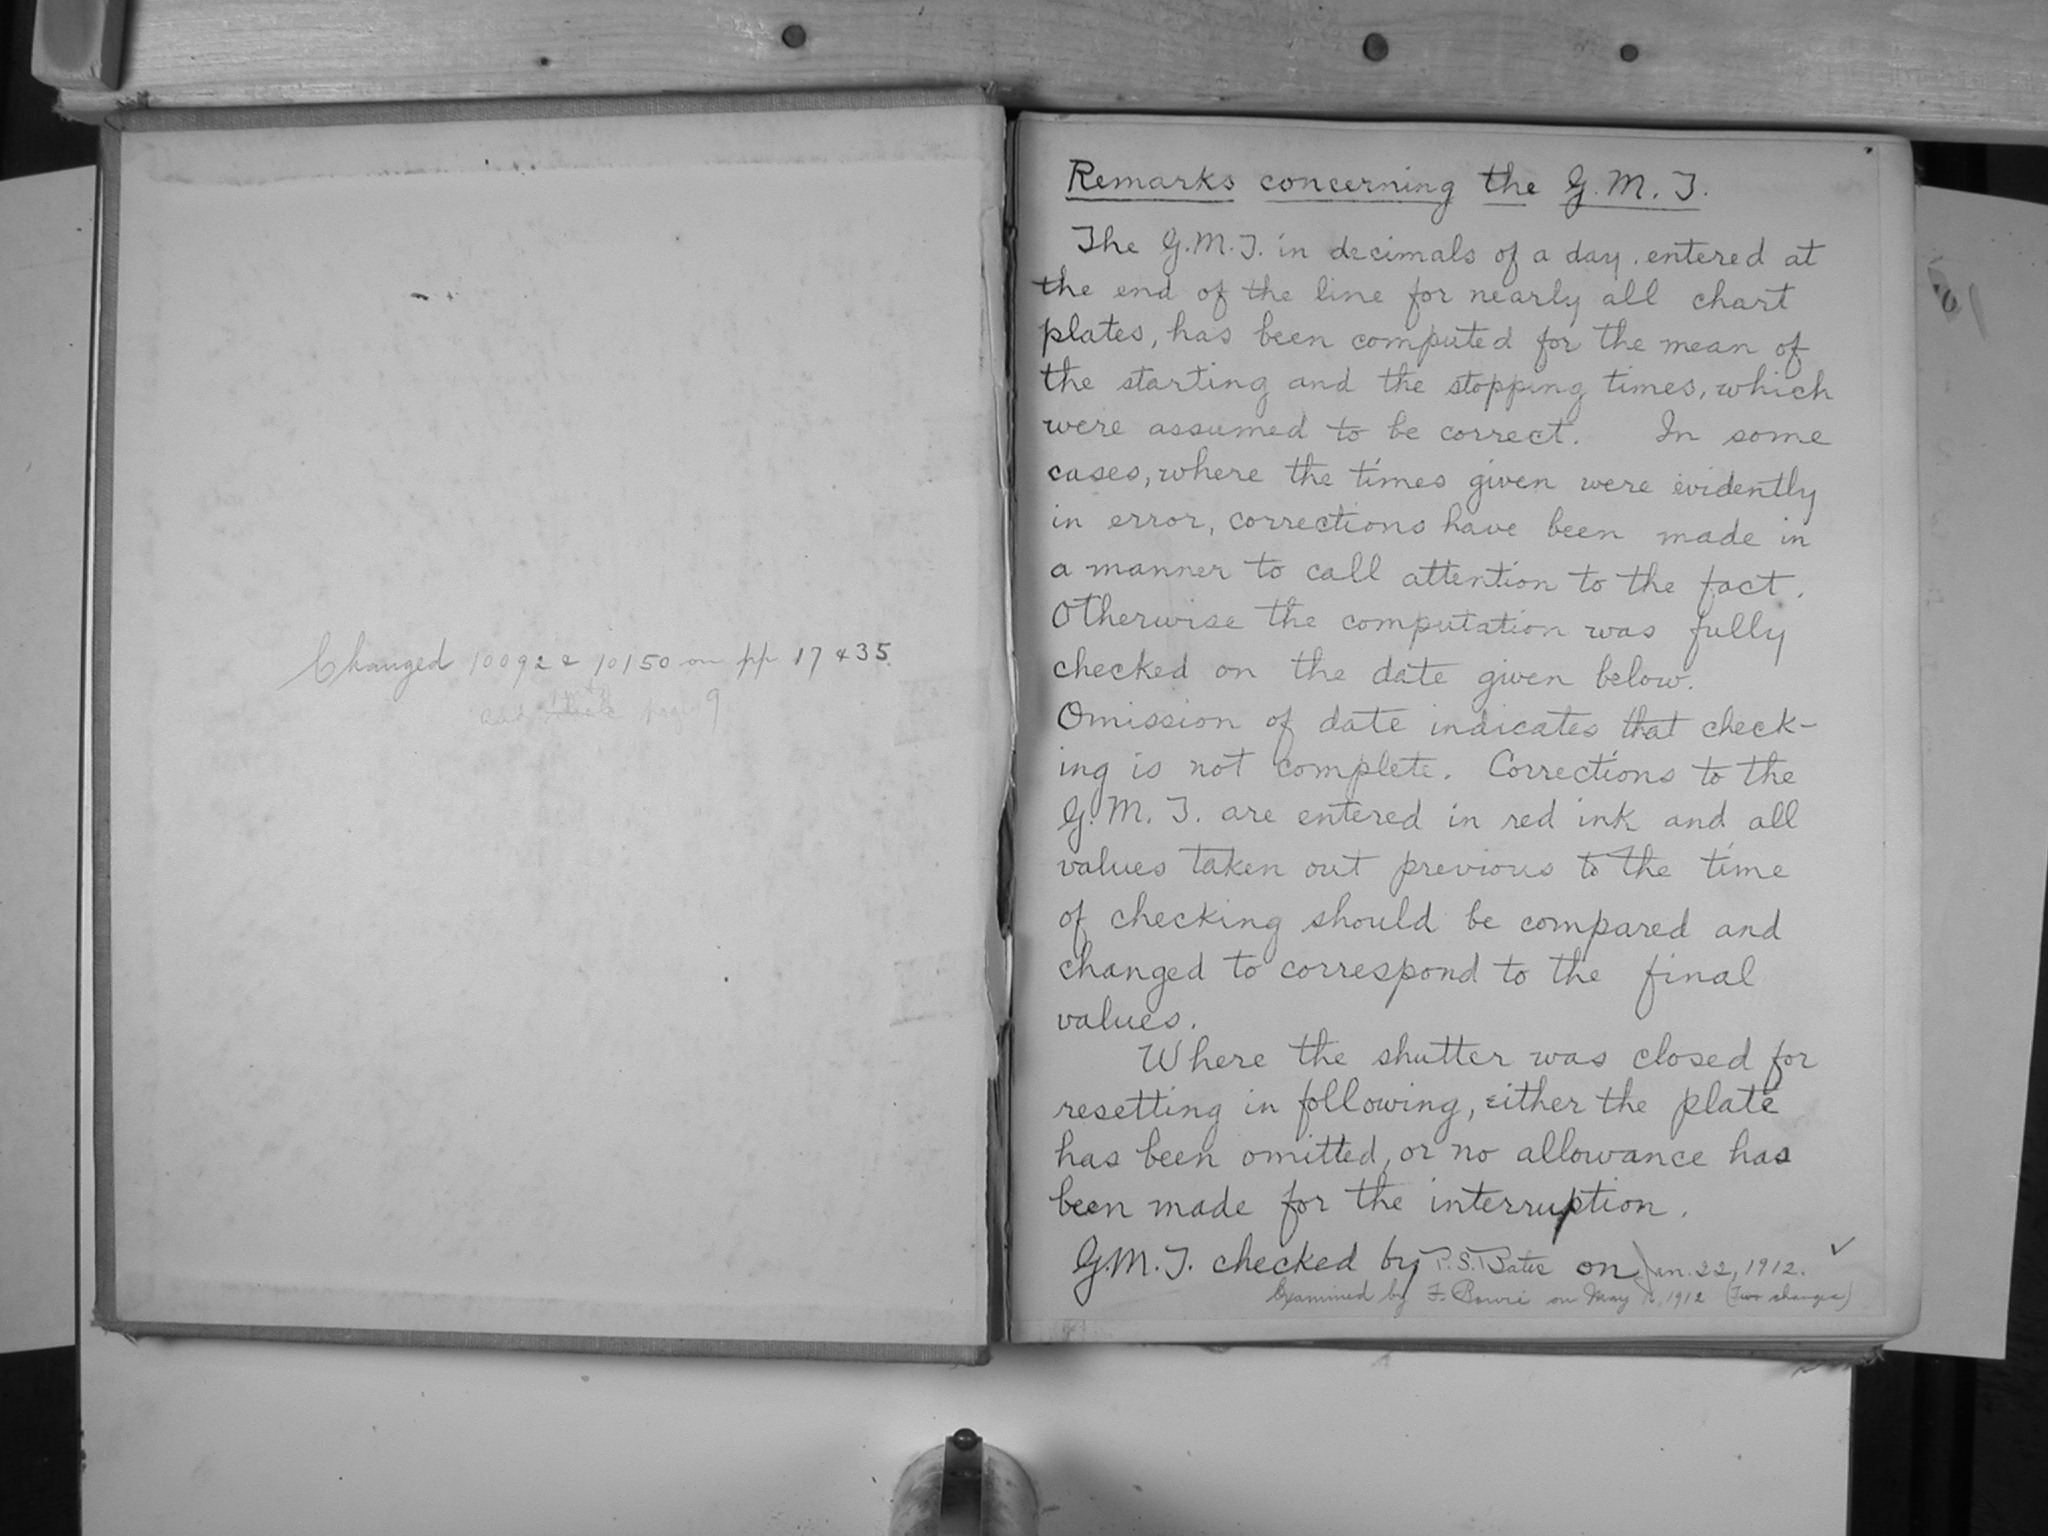 Changed 10092 & 10150 on pp 17 & 35.
add page 9
Remarks concerning the G. M. T.
The G.M.T. in decimals of a day, entered at
the end of the line for nearly all chart
plates, has been computed for the mean of
the starting and the stopping times, which
were assumed to be correct. In some
cases, where the times given were evidently
in error, corrections have been made in
a manner to call attention to the fact.
Otherwise the computation was fully
checked on the date given below.
Omission of date indicates that check-
ing is not complete. Corrections to the
G. M. T. are entered in red ink and all
values taken out previous to the time
of checking should be compared and
changed to correspond to the final
values.
Where the shutter was closed for
resetting in following, either the plate
has been omitted, or no allowance has
been made for the interruption.
G.M.T. checked by P.S. Bates on Jan. 22, 1912. ✓
Examined by F. on May 1912 (Two changes)